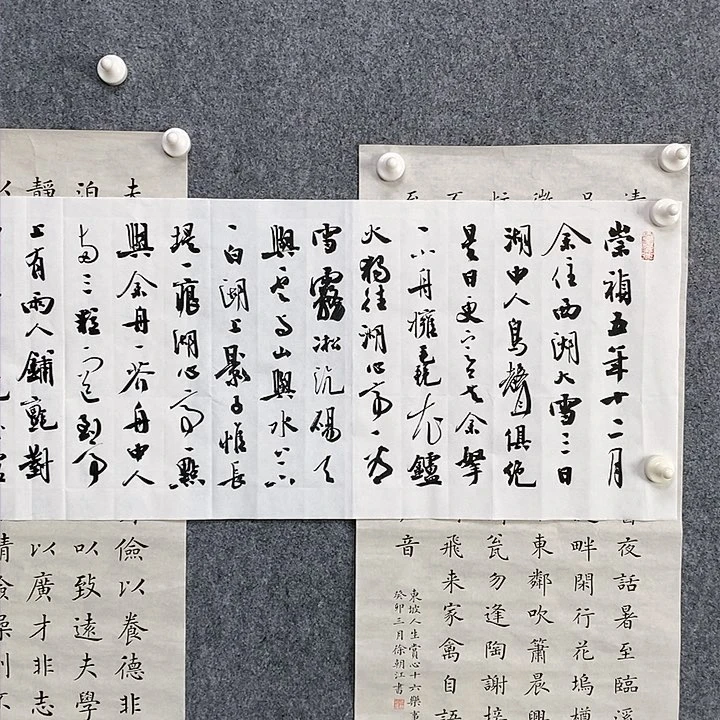 崇禎五年十二月
余住西湖大雪三日
湖中人鳥聲俱絕
是日更定矣余拏
一小舟擁毳衣鑪
火獨往湖心亭看
雪霧凇沆碭天
與雲与山與水上下
一白湖上影子惟長
堤一痕湖心亭一點
與余舟一芥舟中人
兩三粒而已到亭
上有兩人鋪氈對
夜話暑至臨溪
畔閑行花塢樽
東鄰吹簫晨興
瓮勿逢陶謝接
飛来家禽自語
音
東坡人生賞心十六樂事
癸卯三月徐朝江書
儉以養德非
泊
以致遠夫學
靜
以廣才非志